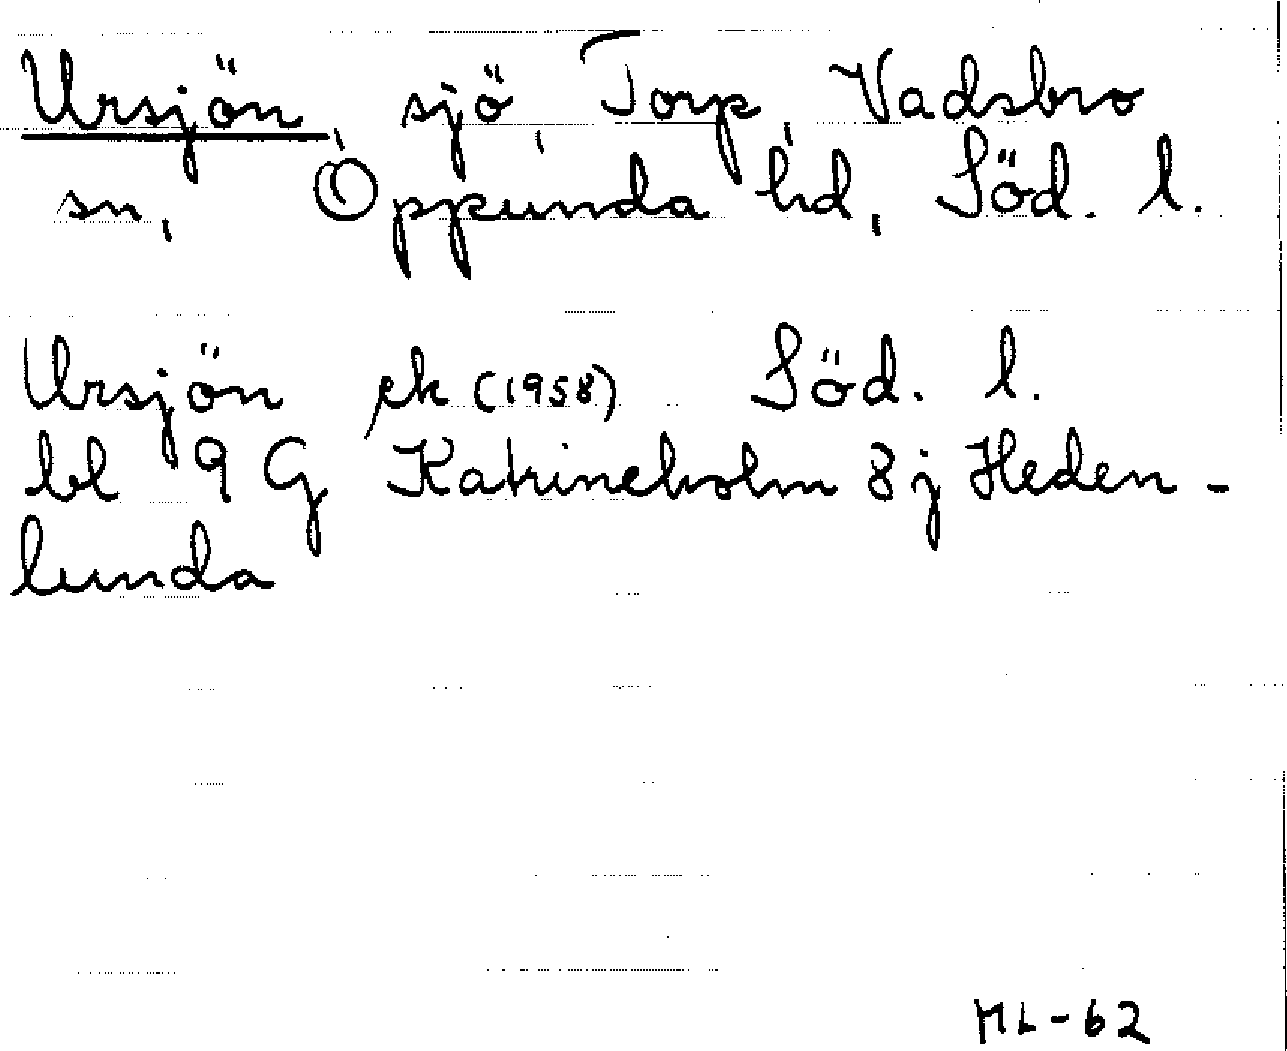 Ursjön, sjö, Torp, Vadsbro
sn, Oppunda hd, Söd. l.
Ursjön ek (1958) Söd. l.
bl 9 G Katrineholm 8 j Heden-
lunda
ML-62